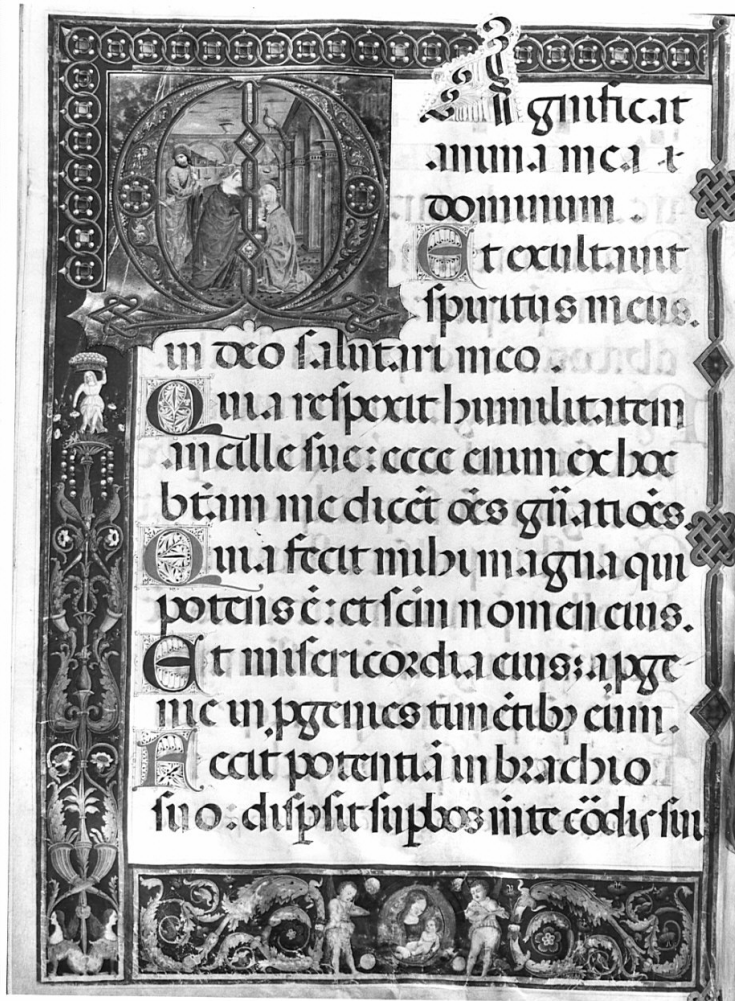 Magnificat
anima mea
dominum.
Et exultavit
spiritus meus.
in deo salutari meo.
Quia respexit humilitatem
ancille sue: ecce enim ex hoc
btam me dicēt oēs gn̄atioēs.
Quia fecit mihi magna qui
potens ē: et scm nomen eius.
Et misericordia eius: a pge
nie in pgenies timētibꝯ eum.
Fecit potentiā in brachio
suo: dispsit supbos mēte cōdis sui